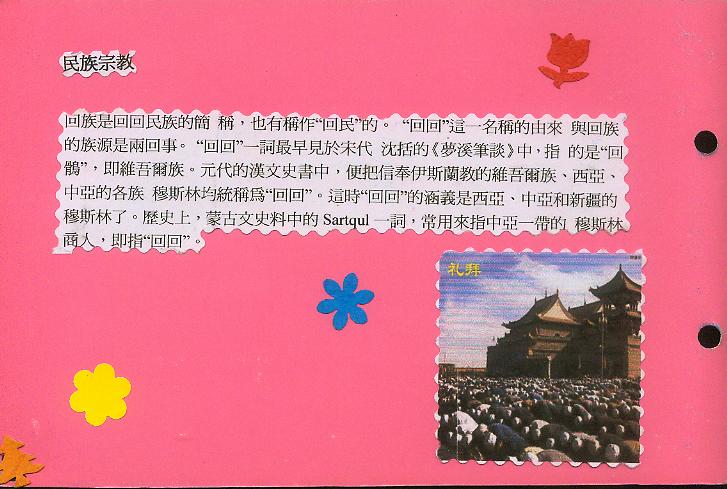 民族宗教
回族是回回民族的簡 稱，也有稱作“回民”的。 “回回”這一名稱的由來 與回族
的族源是兩回事。 “回回”一詞最早見於宋代 沈括的《夢溪筆談》中，指 的是“回
鶻”，即維吾爾族。元代的漢文史書中，便把信奉伊斯蘭教的維吾爾族、西亞、
中亞的各族 穆斯林均統稱爲“回回”。這時“回回”的涵義是西亞、中亞和新疆的
穆斯林了。歷史上，蒙古文史料中的 Sartqul 一詞，常用來指中亞一帶的 穆斯林
商人，即指“回回”。
礼拜